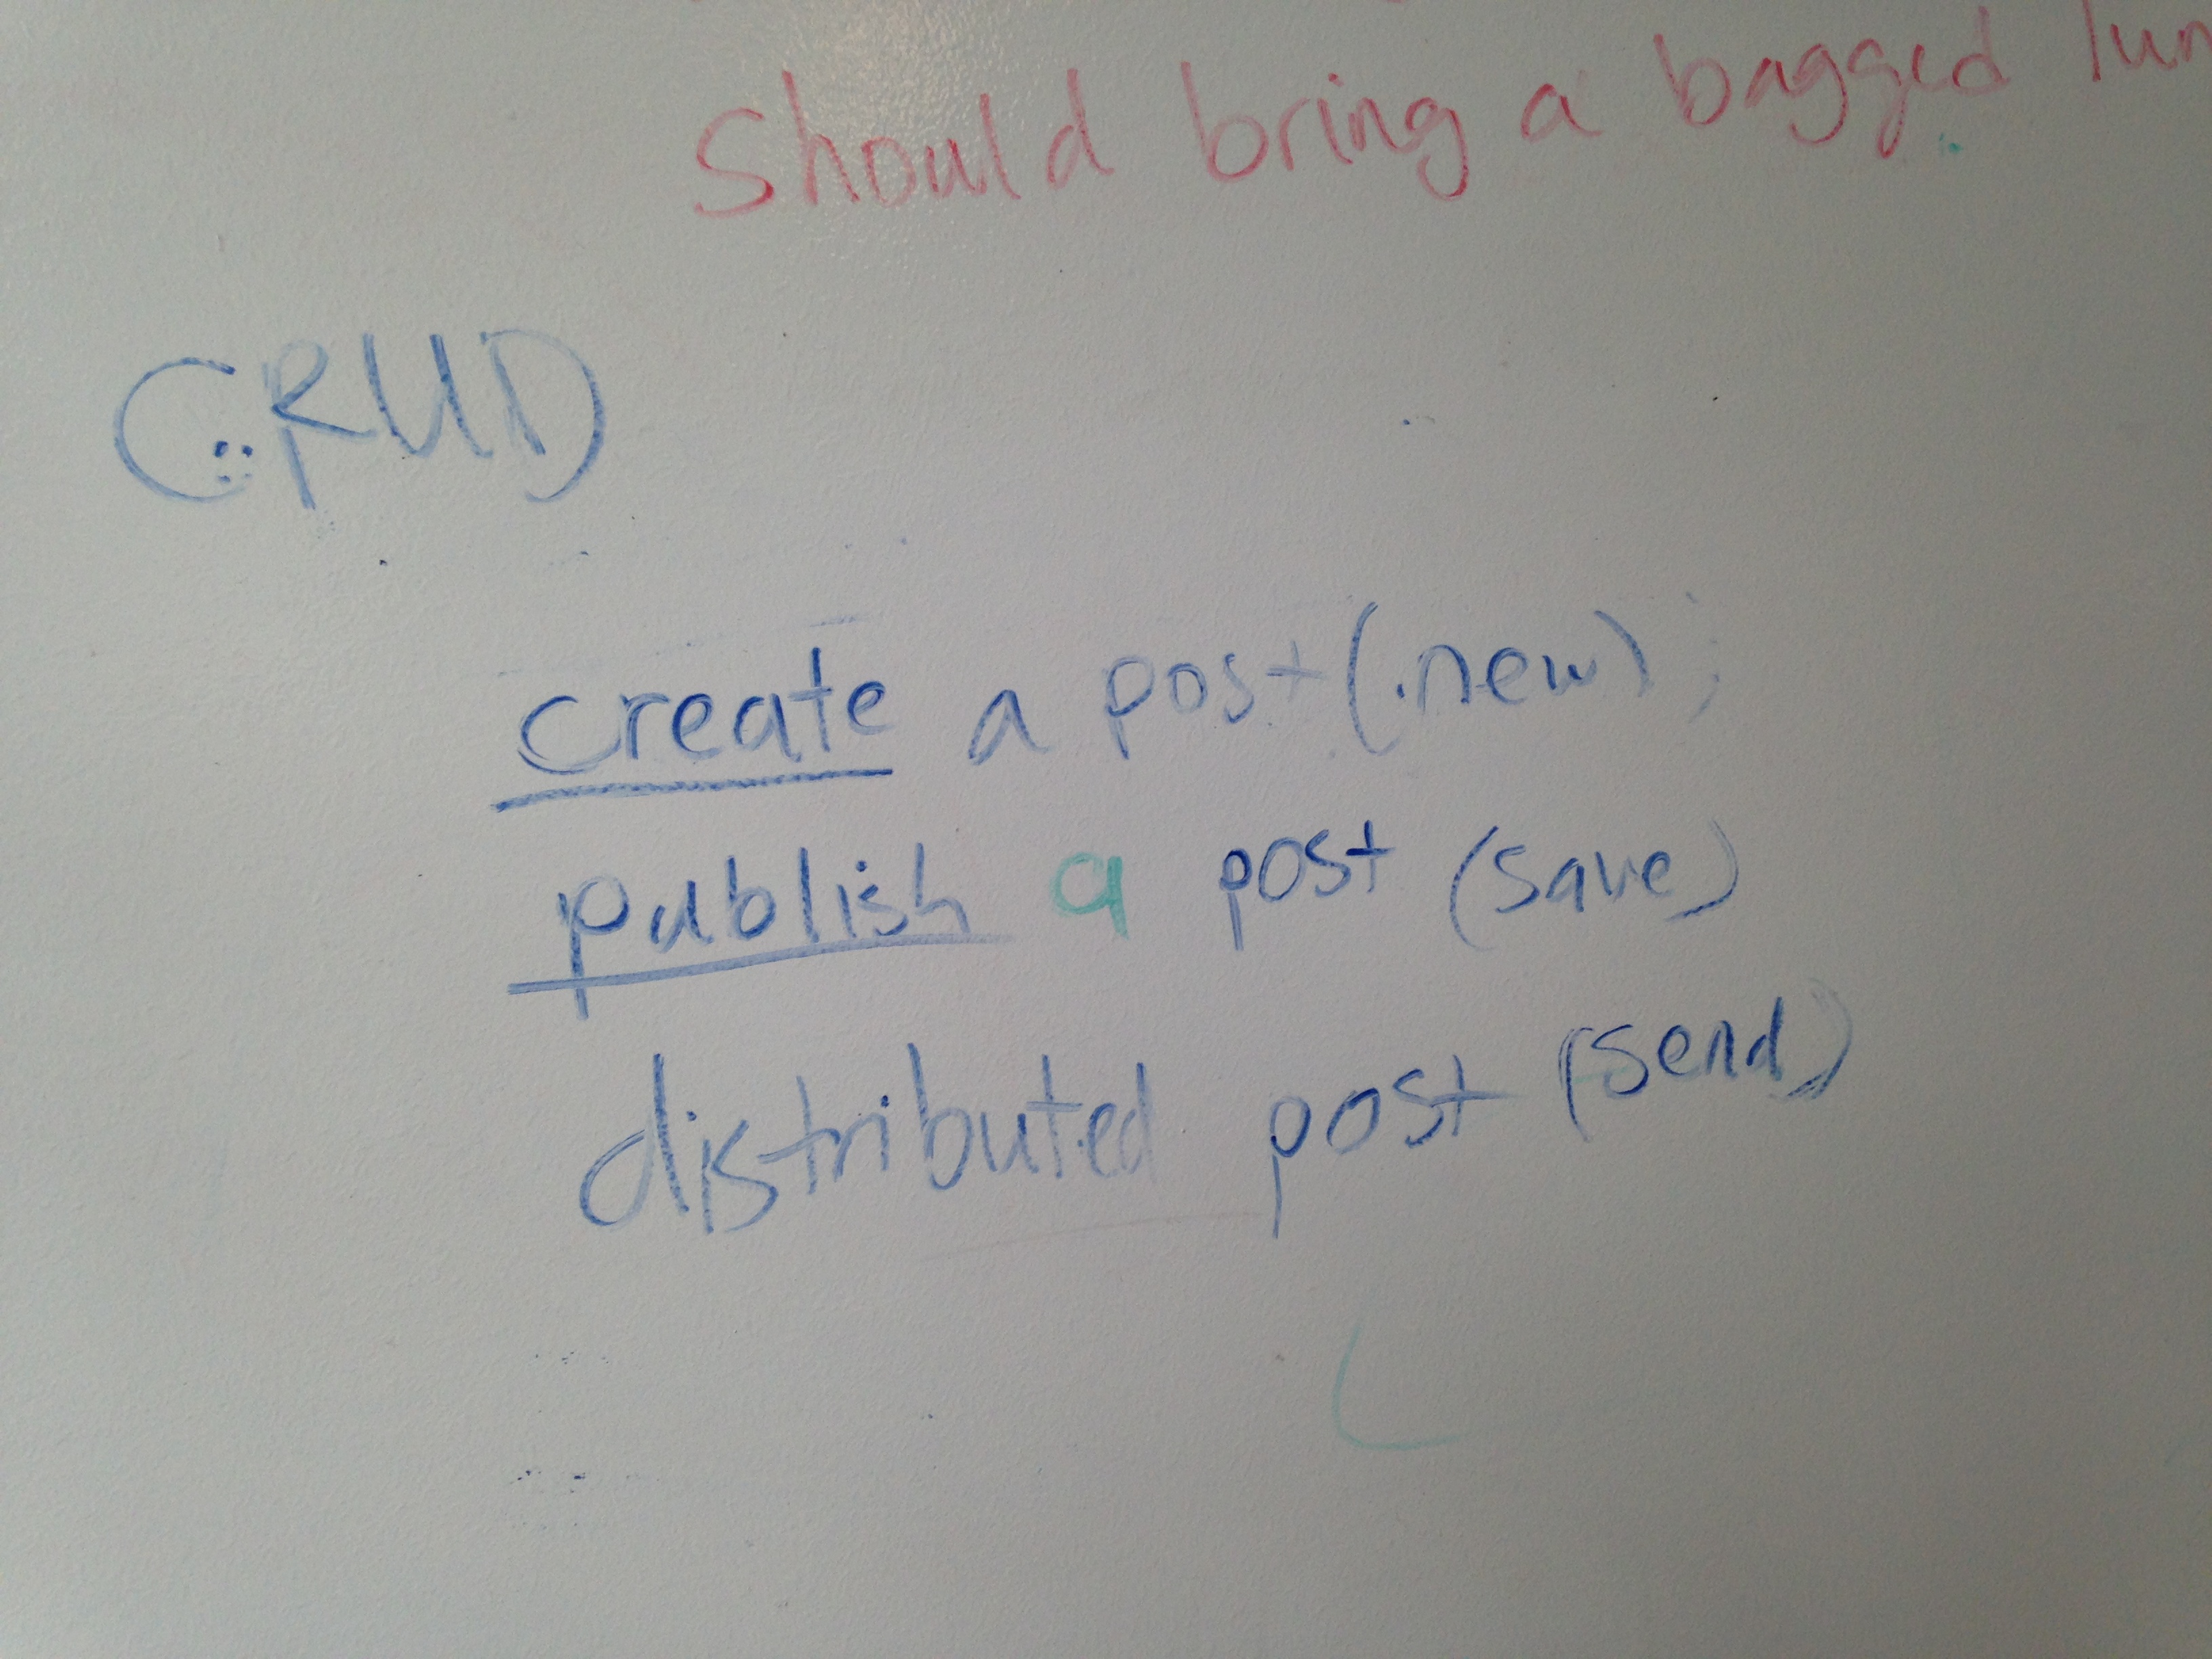 Should bring a bagged
CRUD
create a post (.new);
publish a post (save)
distributed post (send)